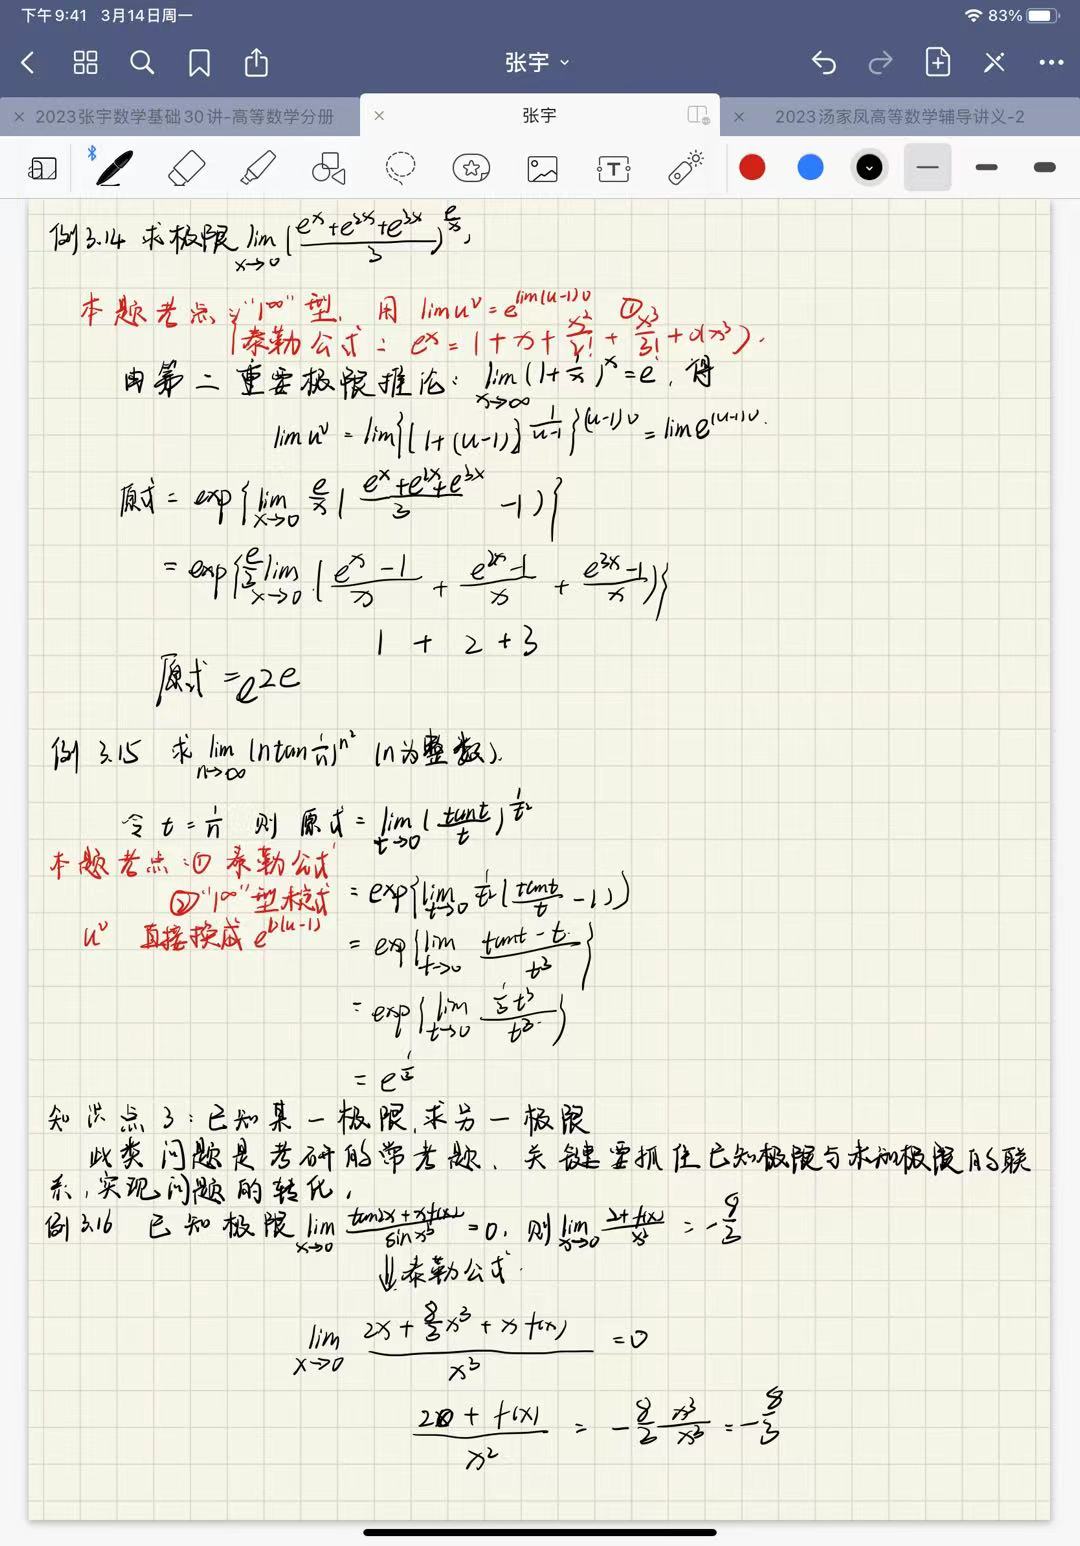 下午9:41 3月14日周一
83%
张宇
2023张宇数学基础30讲-高等数学分册
张宇
2023汤家凤高等数学辅导讲义-2
例3.14 求极限 lim x→0 ((e^x+e^2x+e^3x)/3)^(e/x),
本题考点: "1^∞"型, 用 lim u^v = e^lim(u-1)v ①
泰勒公式: e^x = 1 + x + x²/2! + x³/3! + o(x³).
由第二重要极限推论: lim x→∞ (1+1/x)^x = e, 得
lim u^v = lim{[1+(u-1)]^(1/(u-1))}^((u-1)v) = lim e^((u-1)v).
原式 = exp{lim x→0 e/x ((e^x+e^2x+e^3x)/3 -1)}
= exp{e/3 lim x→0 ((e^x-1)/x + (e^2x-1)/x + (e^3x-1)/x)}
1 + 2 + 3
原式 = e^2e
例 3.15 求 lim n→∞ (n tan 1/n)^n² (n为整数).
令 t = 1/n 则 原式 = lim t→0 (tant/t)^(1/t²)
本题考点: ① 泰勒公式
= exp{lim t→0 1/t² (tant/t -1)}
② "1^∞"型 式
u^v 直接换成 e^v(u-1)
= exp{lim t→0 (tant-t)/t³}
= exp{lim t→0 (1/3 t³)/t³}
= e^(1/3)
知识点3: 已知某一极限, 求另一极限
此类问题是考研的常考题, 关键要抓住已知极限与未知极限的联
系, 实现问题的转化,
例3.16 已知极限 lim x→0 (tan2x+xf(x))/sinx³ = 0, 则 lim x→0 (2+f(x))/x² = -8/3
⇓泰勒公式
lim x→0 (2x + 8/3 x³ + x f(x))/x³ = 0
(2 + f(x))/x² = -8/3 x³/x³ = -8/3